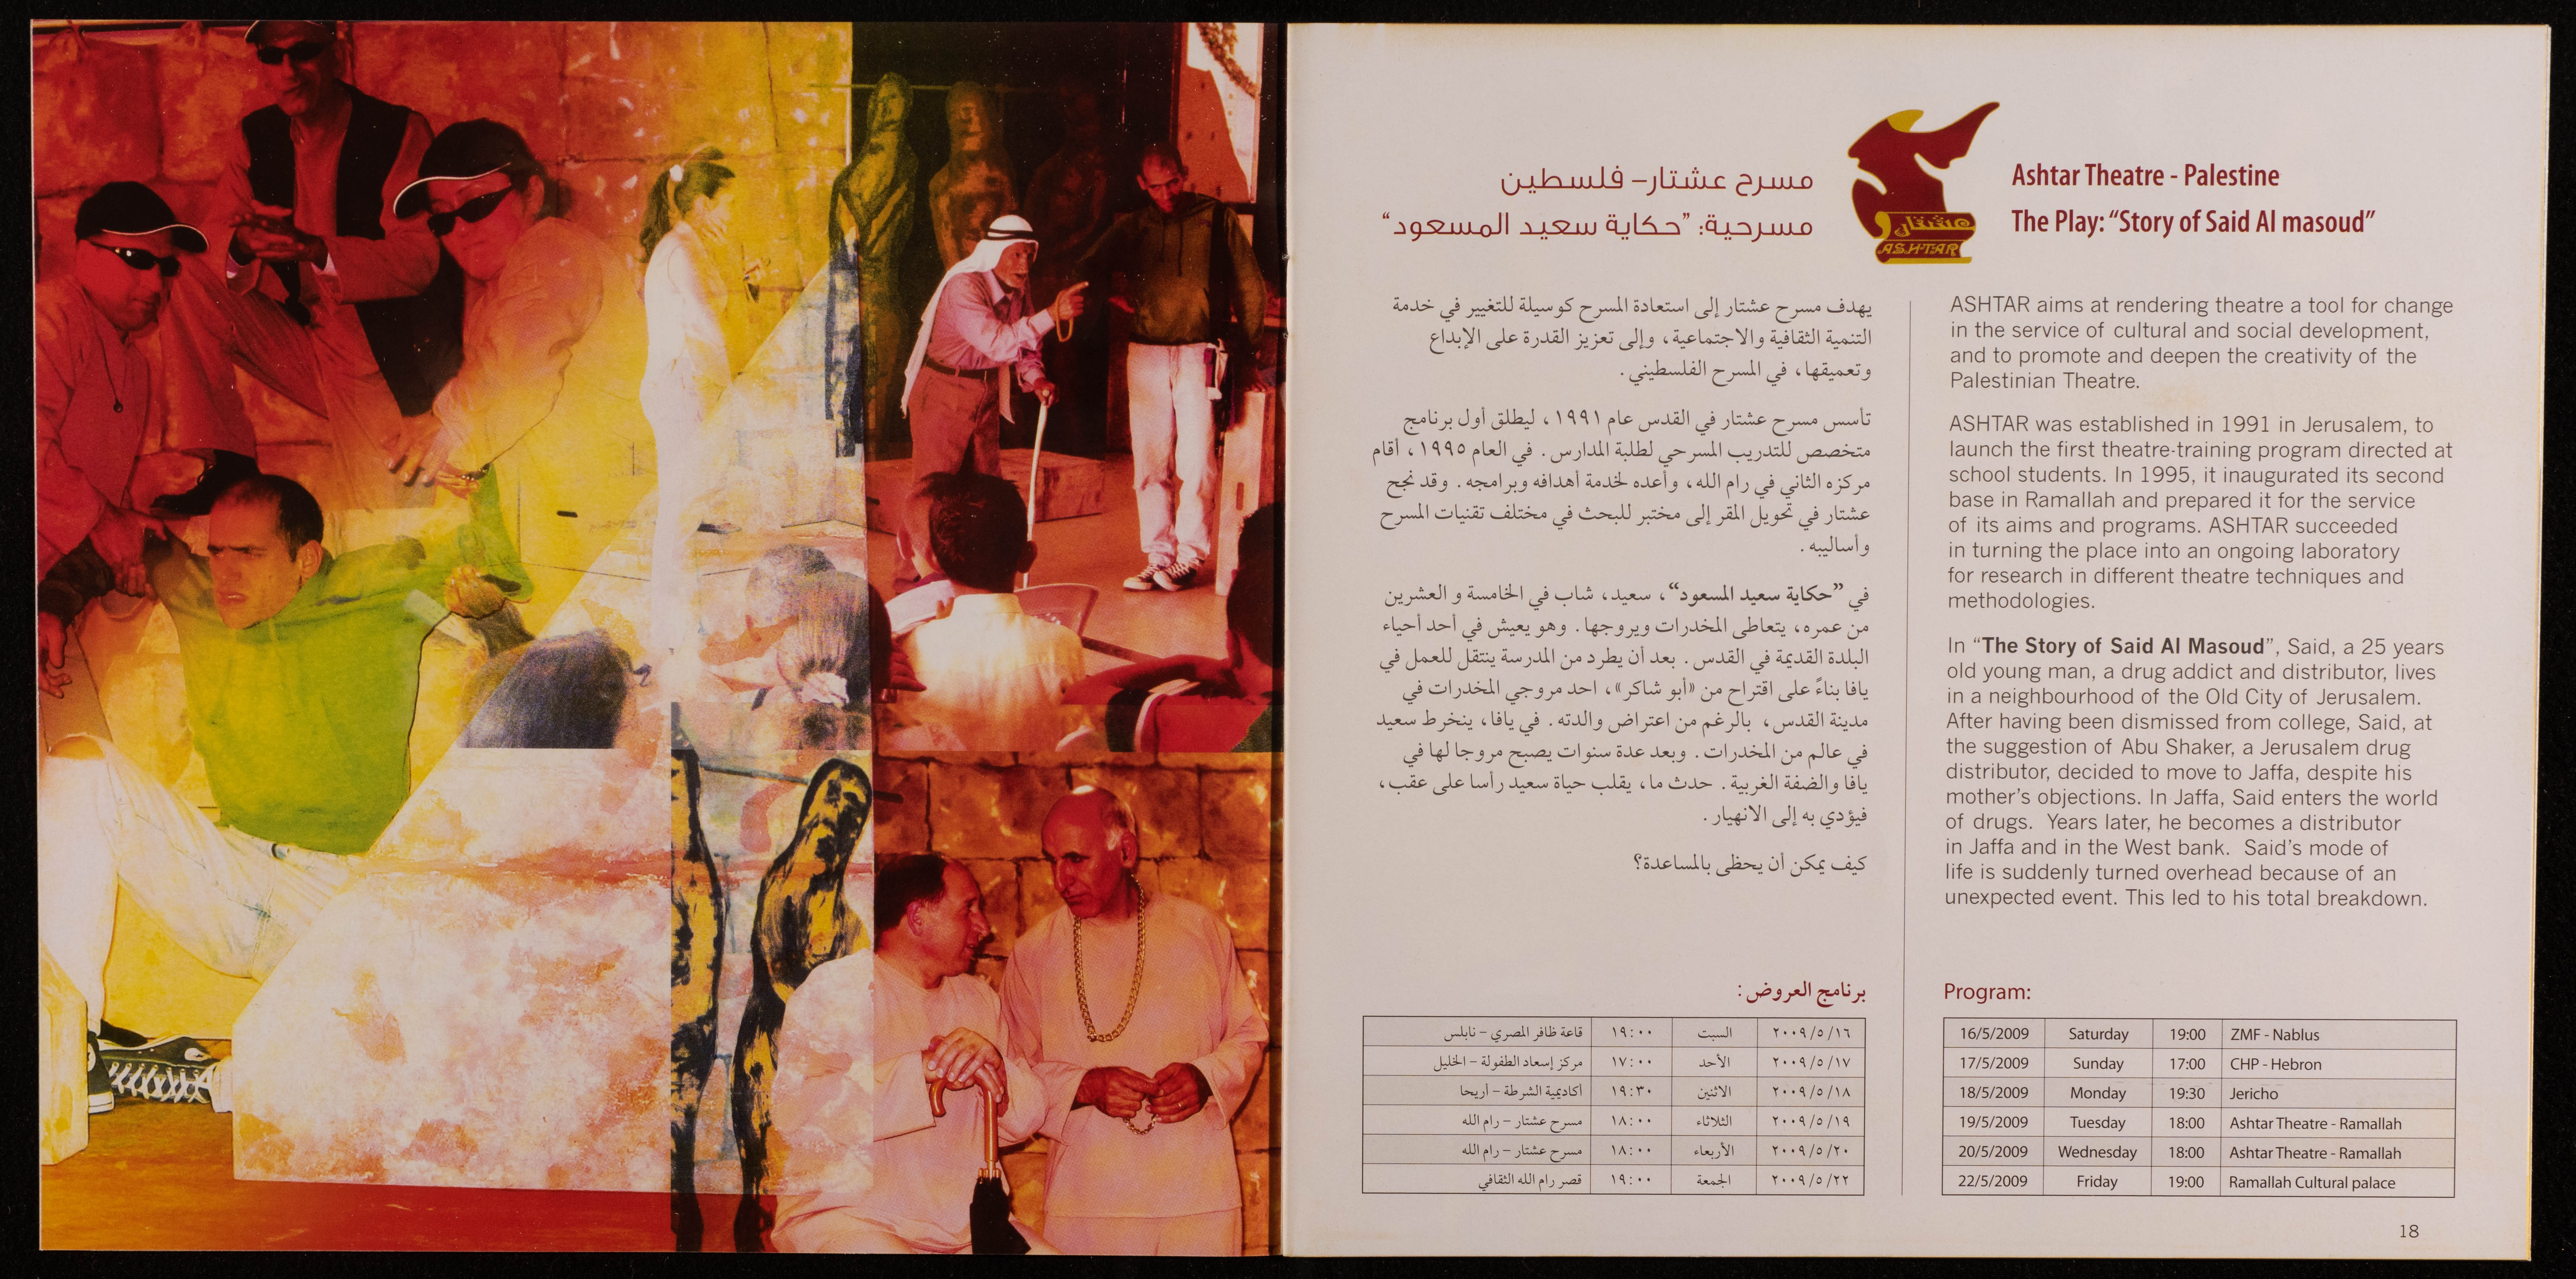 مسرح عشتار– فلسطين
مسرحية: ”حكاية سعيد المسعود“
عشتار
ASHTAR
Ashtar Theatre - Palestine
The Play: “Story of Said Al masoud”
يهدف مسرح عشتار إلى استعادة المسرح كوسيلة للتغيير في خدمة
التنمية الثقافية والاجتماعية، وإلى تعزيز القدرة على الإبداع
وتعميقها، في المسرح الفلسطيني.
تأسس مسرح عشتار في القدس عام ١٩٩١، ليطلق أول برنامج
متخصص للتدريب المسرحي لطلبة المدارس. في العام ١٩٩٥، أقام
مركزه الثاني في رام الله، وأعده لخدمة أهدافه وبرامجه. وقد نجح
عشتار في تحويل المقر إلى مختبر للبحث في مختلف تقنيات المسرح
وأساليبه.
في ”حكاية سعيد المسعود“، سعيد، شاب في الخامسة و العشرين
من عمره، يتعاطى المخدرات ويروجها. وهو يعيش في أحد أحياء
البلدة القديمة في القدس. بعد أن يطرد من المدرسة ينتقل للعمل في
يافا بناءً على اقتراح من «أبو شاكر»، احد مروجي المخدرات في
مدينة القدس، بالرغم من اعتراض والدته. في يافا، ينخرط سعيد
في عالم من المخدرات. وبعد عدة سنوات يصبح مروجا لها في
يافا والضفة الغربية. حدث ما، يقلب حياة سعيد رأسا على عقب،
فيؤدي به إلى الانهيار.
كيف يمكن أن يحظى بالمساعدة؟
برنامج العروض:
٢٠٠٩/٥/١٦ السبت ١٩:٠٠ قاعة ظافر المصري – نابلس
٢٠٠٩/٥/١٧ الأحد ١٧:٠٠ مركز إسعاد الطفولة – الخليل
٢٠٠٩/٥/١٨ الاثنين ١٩:٣٠ أكاديمية الشرطة – أريحا
٢٠٠٩/٥/١٩ الثلاثاء ١٨:٠٠ مسرح عشتار – رام الله
٢٠٠٩/٥/٢٠ الأربعاء ١٨:٠٠ مسرح عشتار – رام الله
٢٠٠٩/٥/٢٢ الجمعة ١٩:٠٠ قصر رام الله الثقافي
ASHTAR aims at rendering theatre a tool for change
in the service of cultural and social development,
and to promote and deepen the creativity of the
Palestinian Theatre.
ASHTAR was established in 1991 in Jerusalem, to
launch the first theatre-training program directed at
school students. In 1995, it inaugurated its second
base in Ramallah and prepared it for the service
of its aims and programs. ASHTAR succeeded
in turning the place into an ongoing laboratory
for research in different theatre techniques and
methodologies.
In “The Story of Said Al Masoud”, Said, a 25 years
old young man, a drug addict and distributor, lives
in a neighbourhood of the Old City of Jerusalem.
After having been dismissed from college, Said, at
the suggestion of Abu Shaker, a Jerusalem drug
distributor, decided to move to Jaffa, despite his
mother’s objections. In Jaffa, Said enters the world
of drugs. Years later, he becomes a distributor
in Jaffa and in the West bank. Said’s mode of
life is suddenly turned overhead because of an
unexpected event. This led to his total breakdown.
Program:
16/5/2009 Saturday 19:00 ZMF - Nablus
17/5/2009 Sunday 17:00 CHP - Hebron
18/5/2009 Monday 19:30 Jericho
19/5/2009 Tuesday 18:00 Ashtar Theatre - Ramallah
20/5/2009 Wednesday 18:00 Ashtar Theatre - Ramallah
22/5/2009 Friday 19:00 Ramallah Cultural palace
18